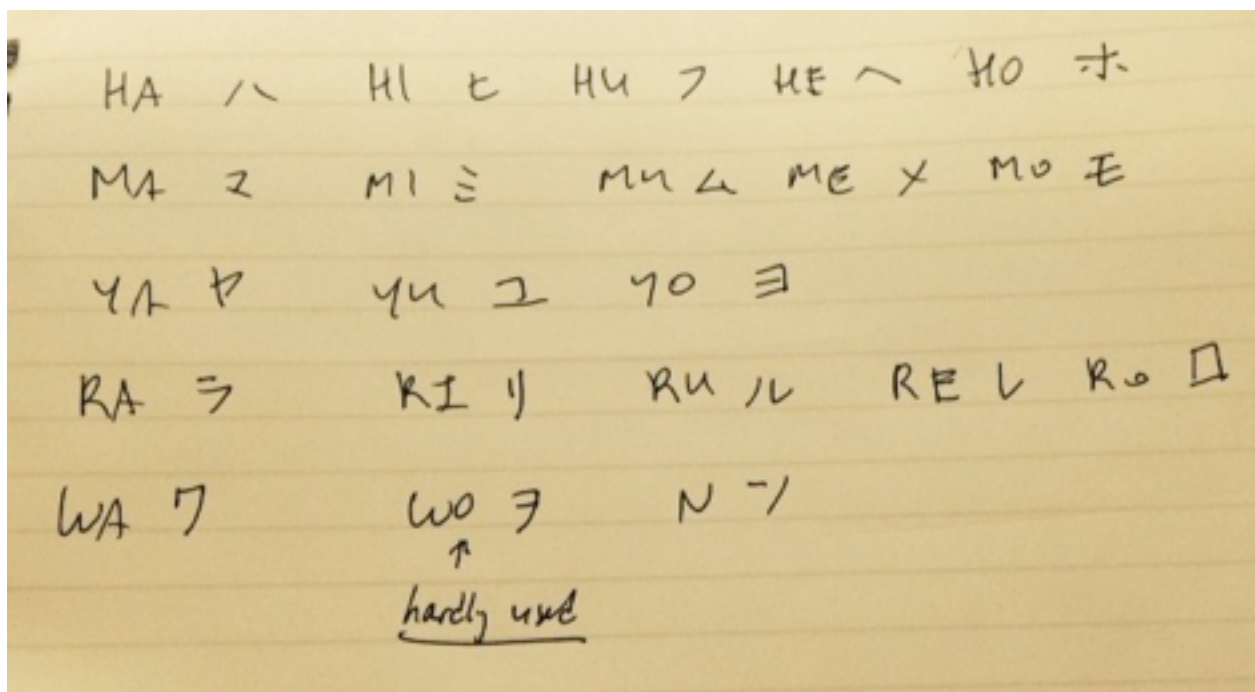 HA ハ HI ヒ HU フ HE ヘ HO ホ
MA マ MI ミ MU ム ME メ MO モ
YA ヤ YU ユ YO ヨ
RA ラ RI リ RU ル RE レ RO ロ
WA ワ WO ヲ N ン
↑
hardly used